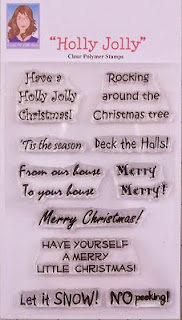 "Holly Jolly"
Clear Polymer Stamps
Have a
Holly Jolly
Christmas!
Rocking
around the
Christmas tree
'Tis the season
Deck the Halls!
From our house
To your house
Merry
Merry!
Merry Christmas!
HAVE YOURSELF
A MERRY
LITTLE CHRISTMAS!
Let it SNOW!
NO peeking!